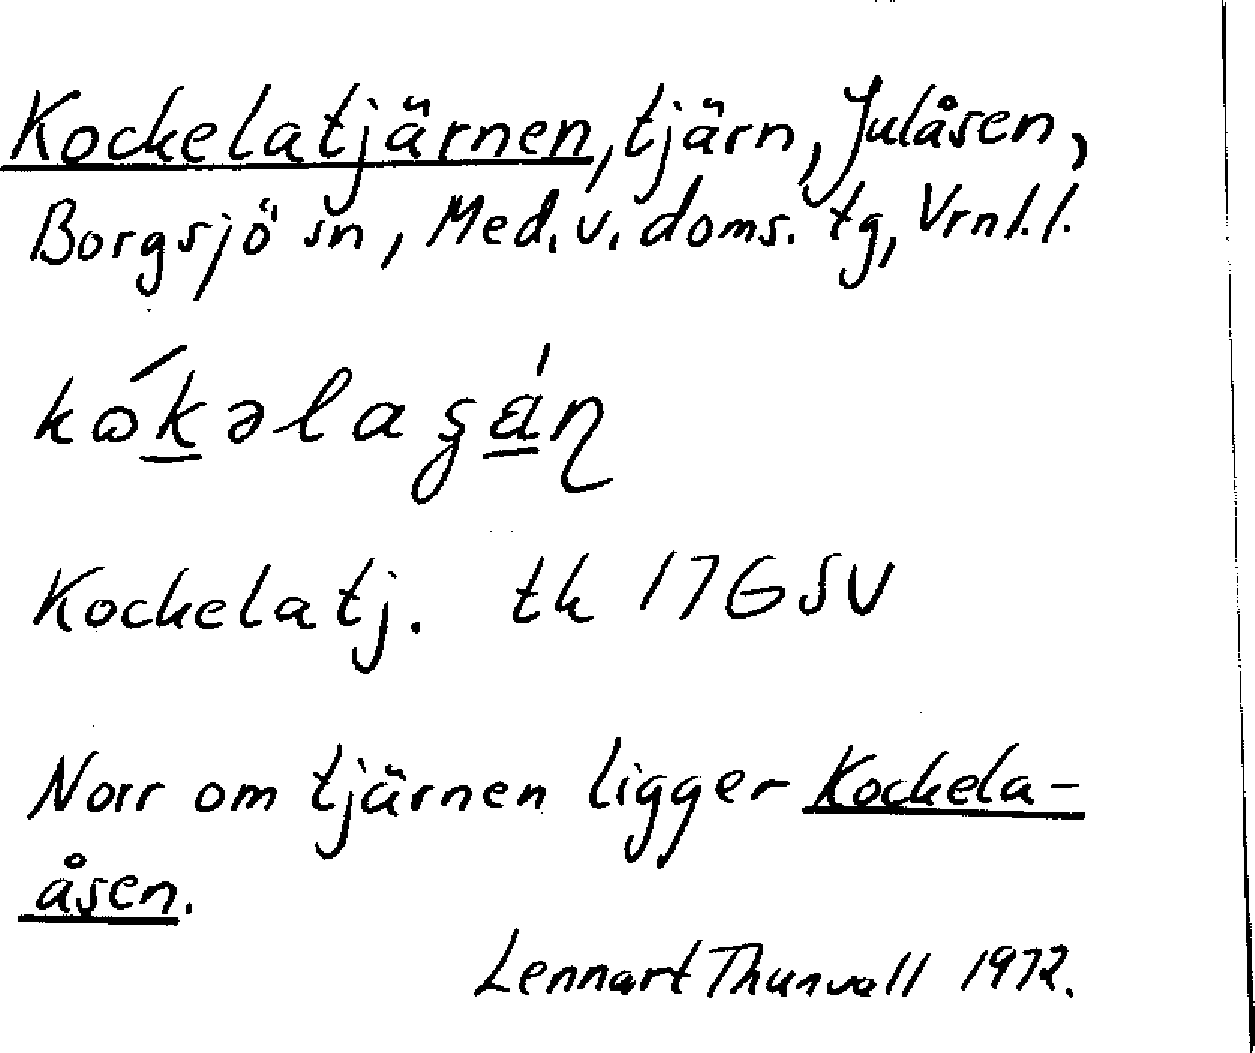 Kockelatjärnen, tjärn, Julåsen,
Borgsjö sn, Med. v. doms. tg, Vrnl.l.
kɷ́k̲əlaʂá̲ɳ
Kockelatj. tk 17G SV
Norr om tjärnen ligger Kockela-
åsen.
Lennart Thunvall 1972.